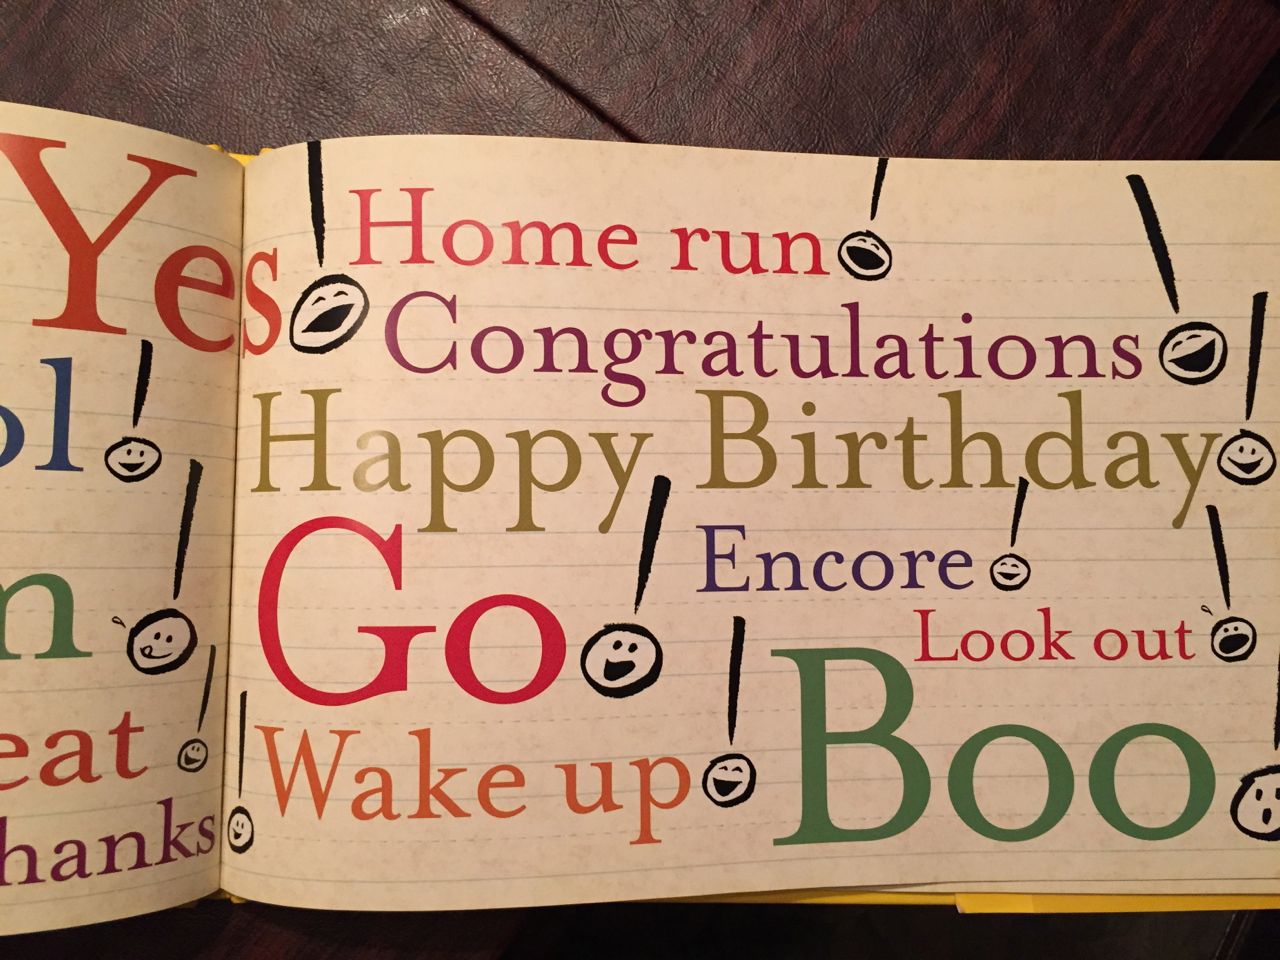 Yes!
Home run!
Congratulations!
ol!
Happy Birthday!
Go!
Encore!
n!
Look out!
eat!
Wake up!
Boo!
hanks!